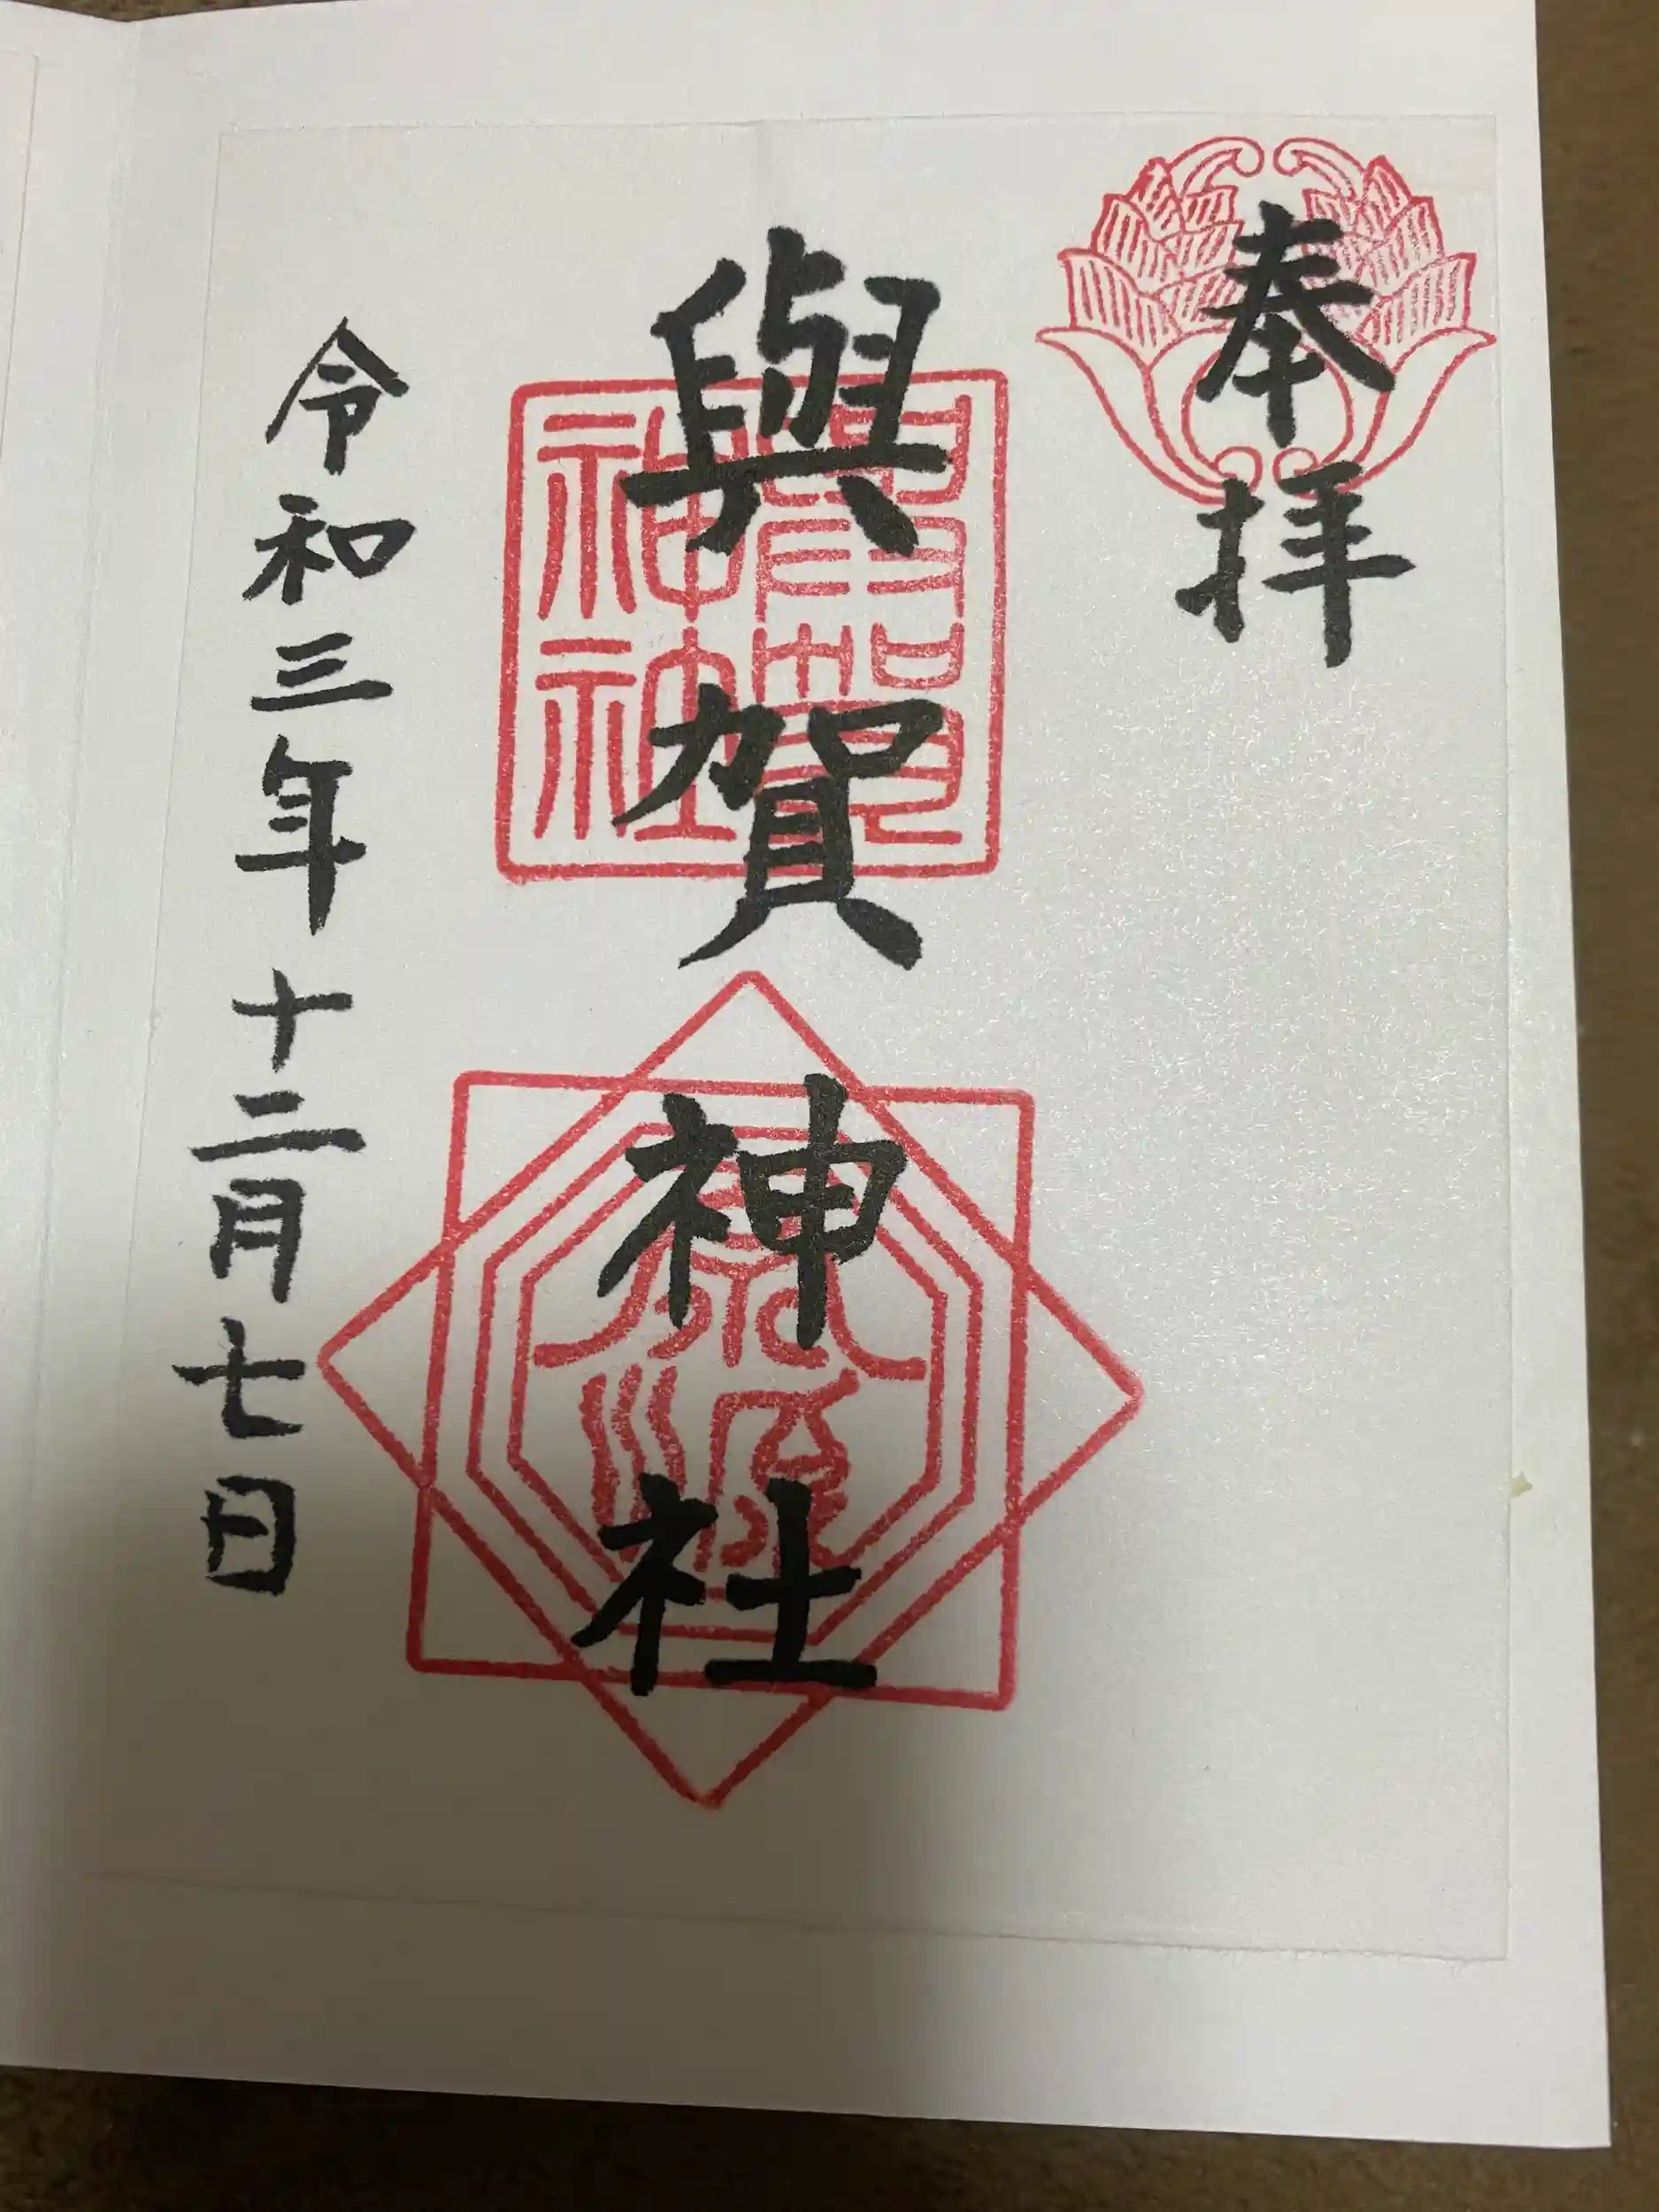 奉拝
與賀神社
令和三年十二月七日
與賀神社